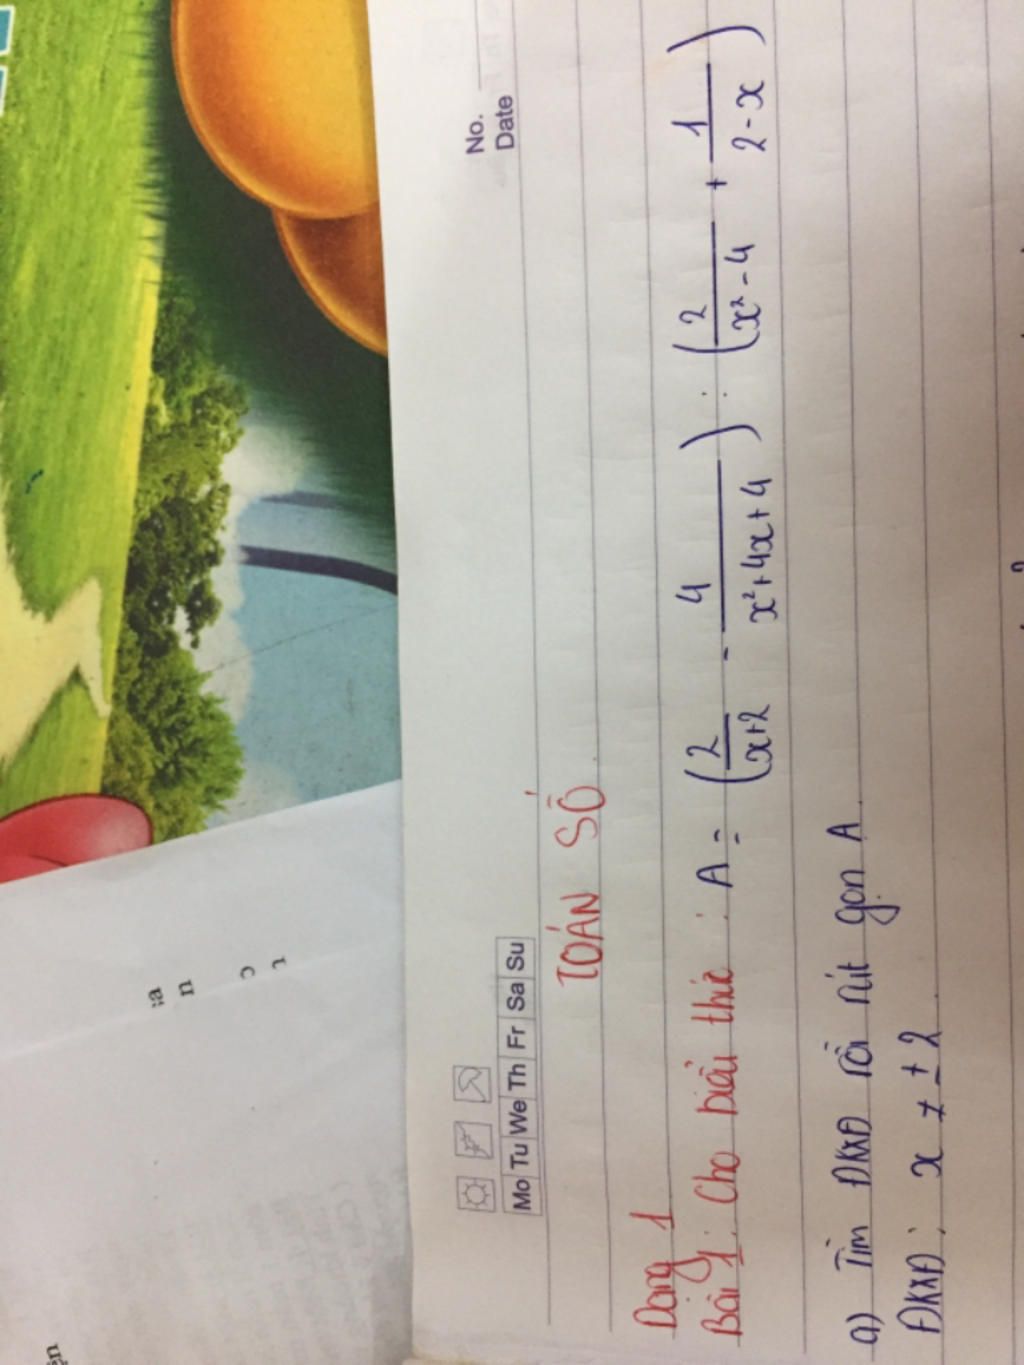 No.
Date
Mo Tu We Th Fr Sa Su
TOÁN SỐ
Dạng 1
Bài 1: Cho biểu thức : A = (2/(x+2) - 4/(x²+4x+4)) : (2/(x²-4) + 1/(2-x))
a) Tìm ĐKXĐ rồi rút gọn A.
ĐKXĐ: x ≠ ±2.